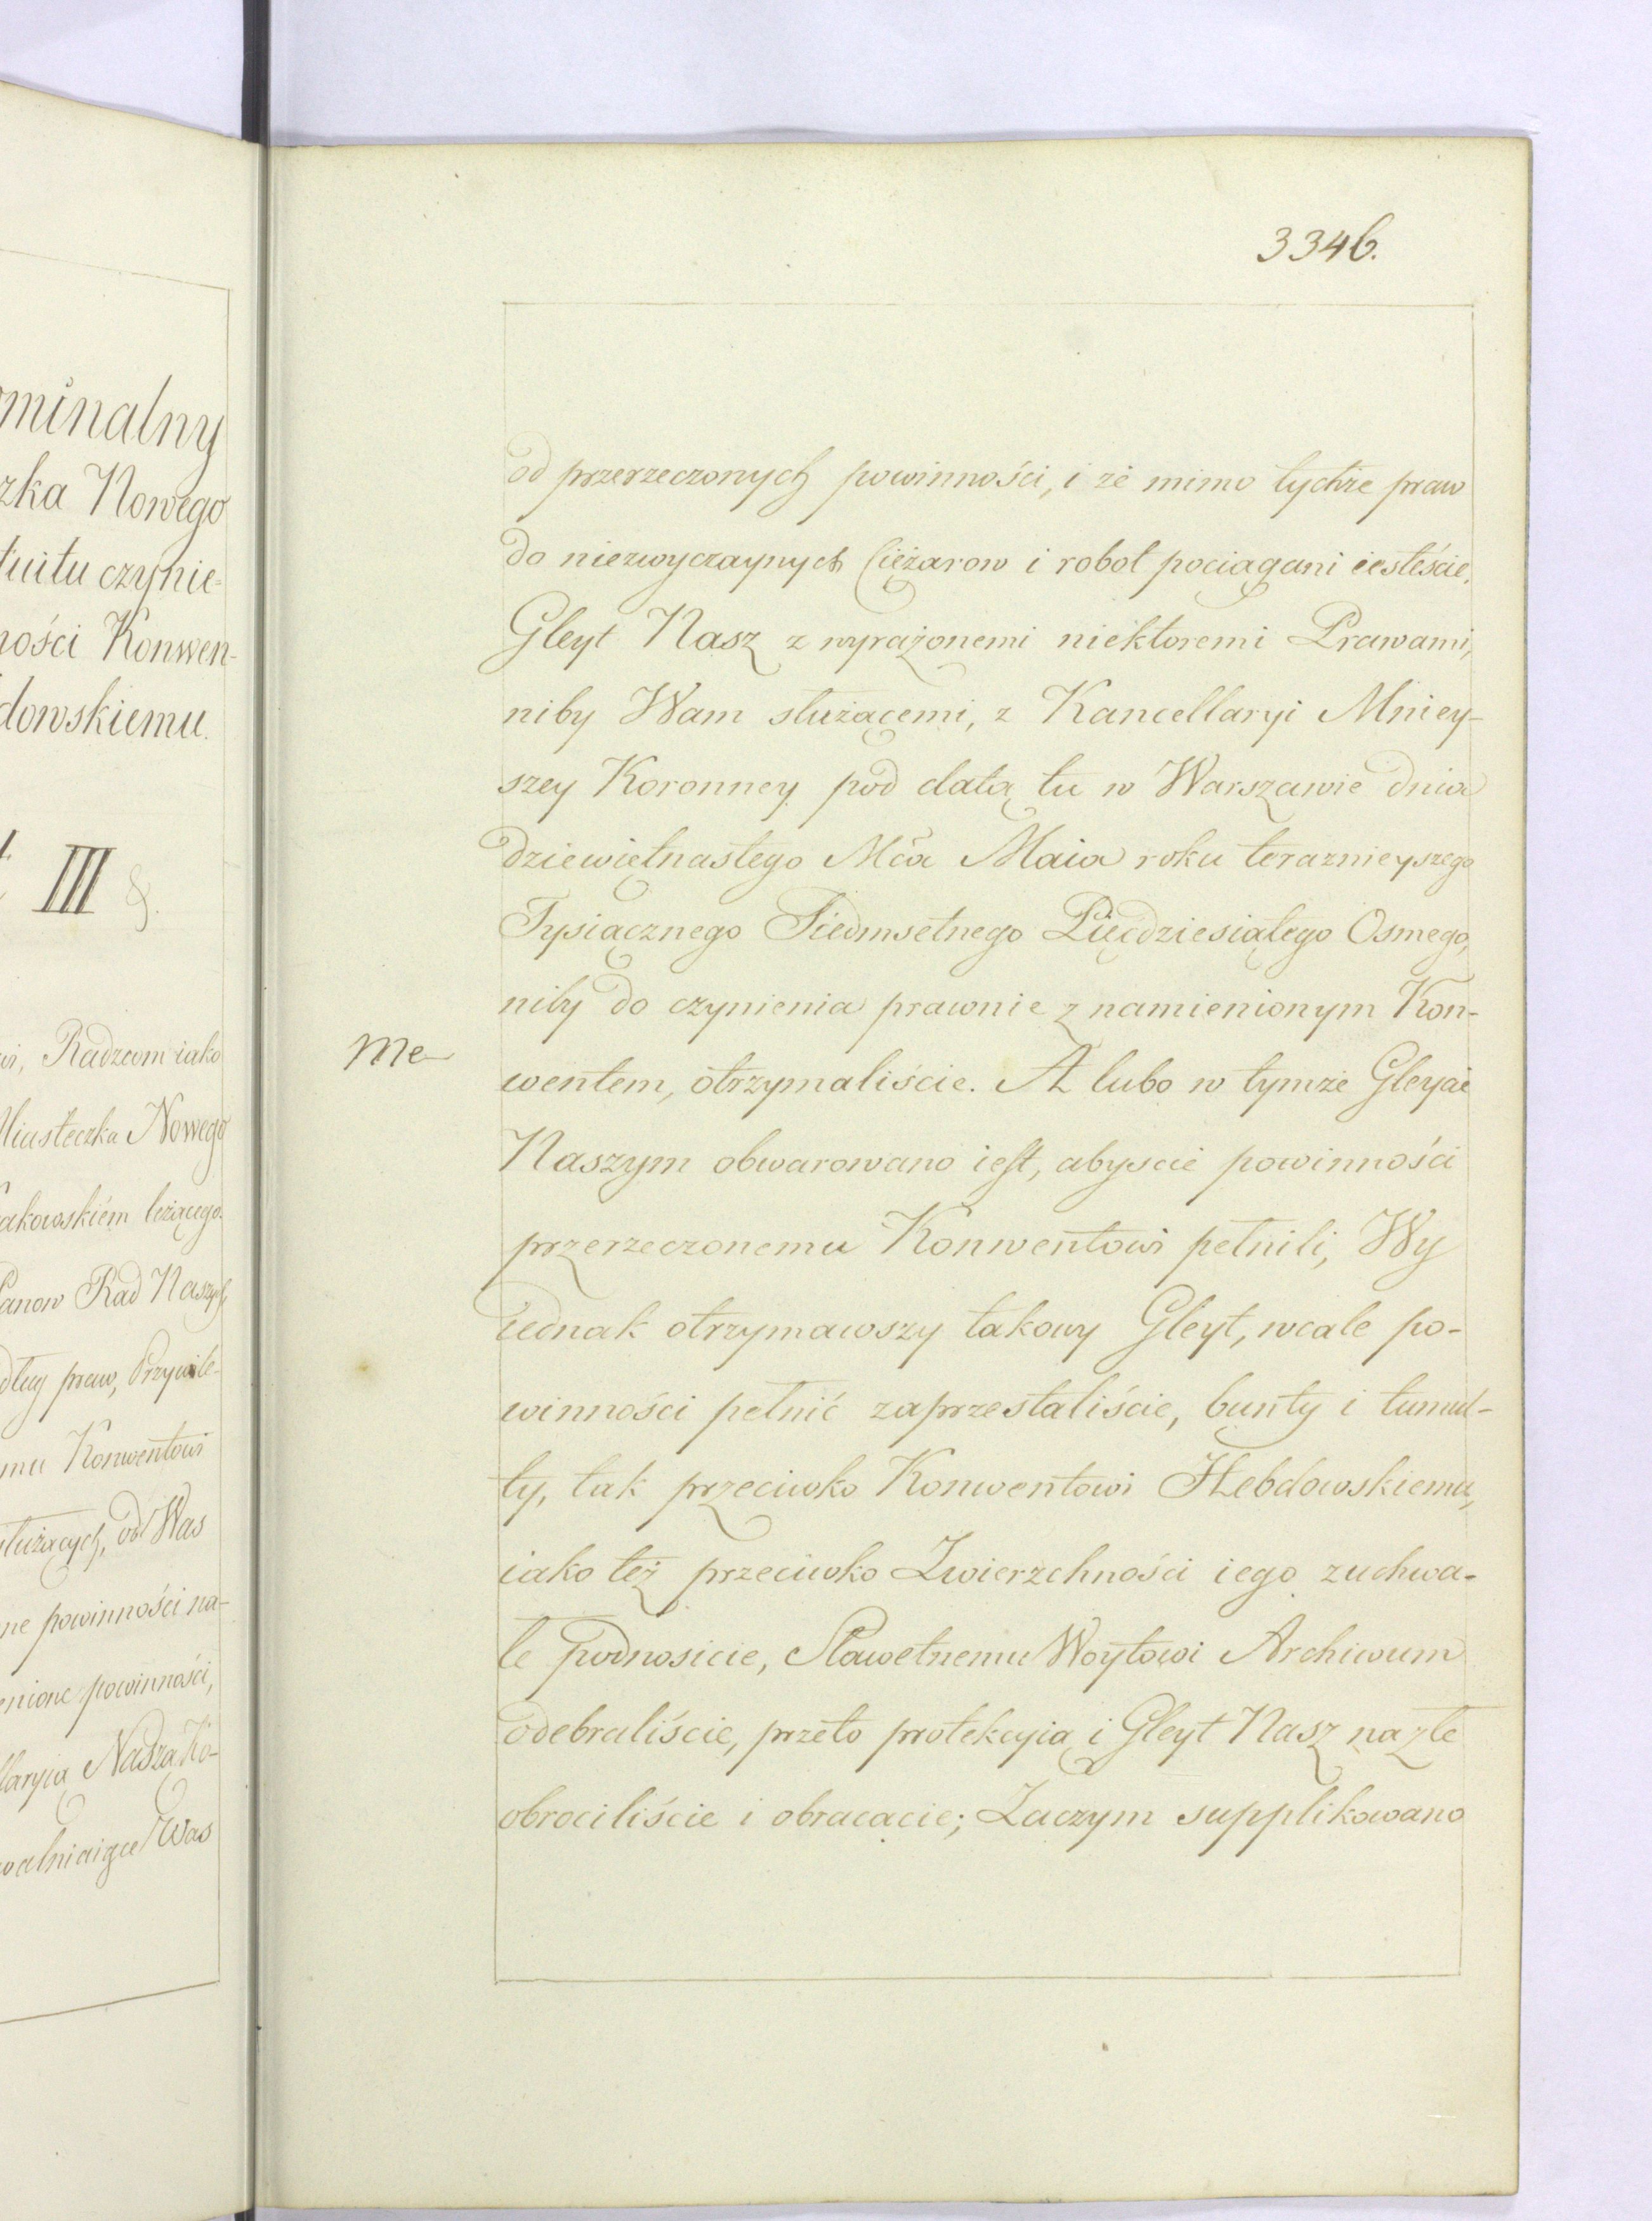 minalny
zka Nowego
tuitu czynie-
ności Konwen-
dowskiemu.
III
Radzcom iako
Miasteczka Nowego
akowskiém leżącego.
Panow Rad Naszych
dług praw, Przywile-
mu Konwentowi
służących, od Was
ne powinności na-
enione powinności,
laryią Naszą Ko-
walniaiące Was
3346.
od przerzeczonych powinności, i że mimo tychże praw
do niezwyczaynych Ciężarow i robot pociągani iesteście.
Gleyt Nasz z wyrażonemi niektoremi Prawami,
niby Wam służącemi, z Kancellaryi Mniey-
szey Koronney pod datą tu w Warszawie dnia
dziewiętnastego Mca Maia roku teraznieyszego
Tysiącznego Siedmsetnego Pięćdziesiątego Osmego,
niby do czynienia prawnie z namienionym Kon-
Me
wentem, otrzymaliście. A lubo w tymże Gleycie
Naszym obwarowano iest, abyscie powinności
przerzeczonemu Konwentowi pełnili, Wy
iednak otrzymawszy takowy Gleyt, wcale po-
winności pełnić zaprzestaliście, bunty i tumul-
ty, tak przeciwko Konwentowi Hebdowskiemu,
iako też przeciwko Zwierzchności iego zuchwa-
le podnosicie, Sławetnemu Woytowi Archiwum
odebraliście, przeto protekcyią i Gleyt Nasz na złe
obrociliście i obracacie; Zaczym supplikowano